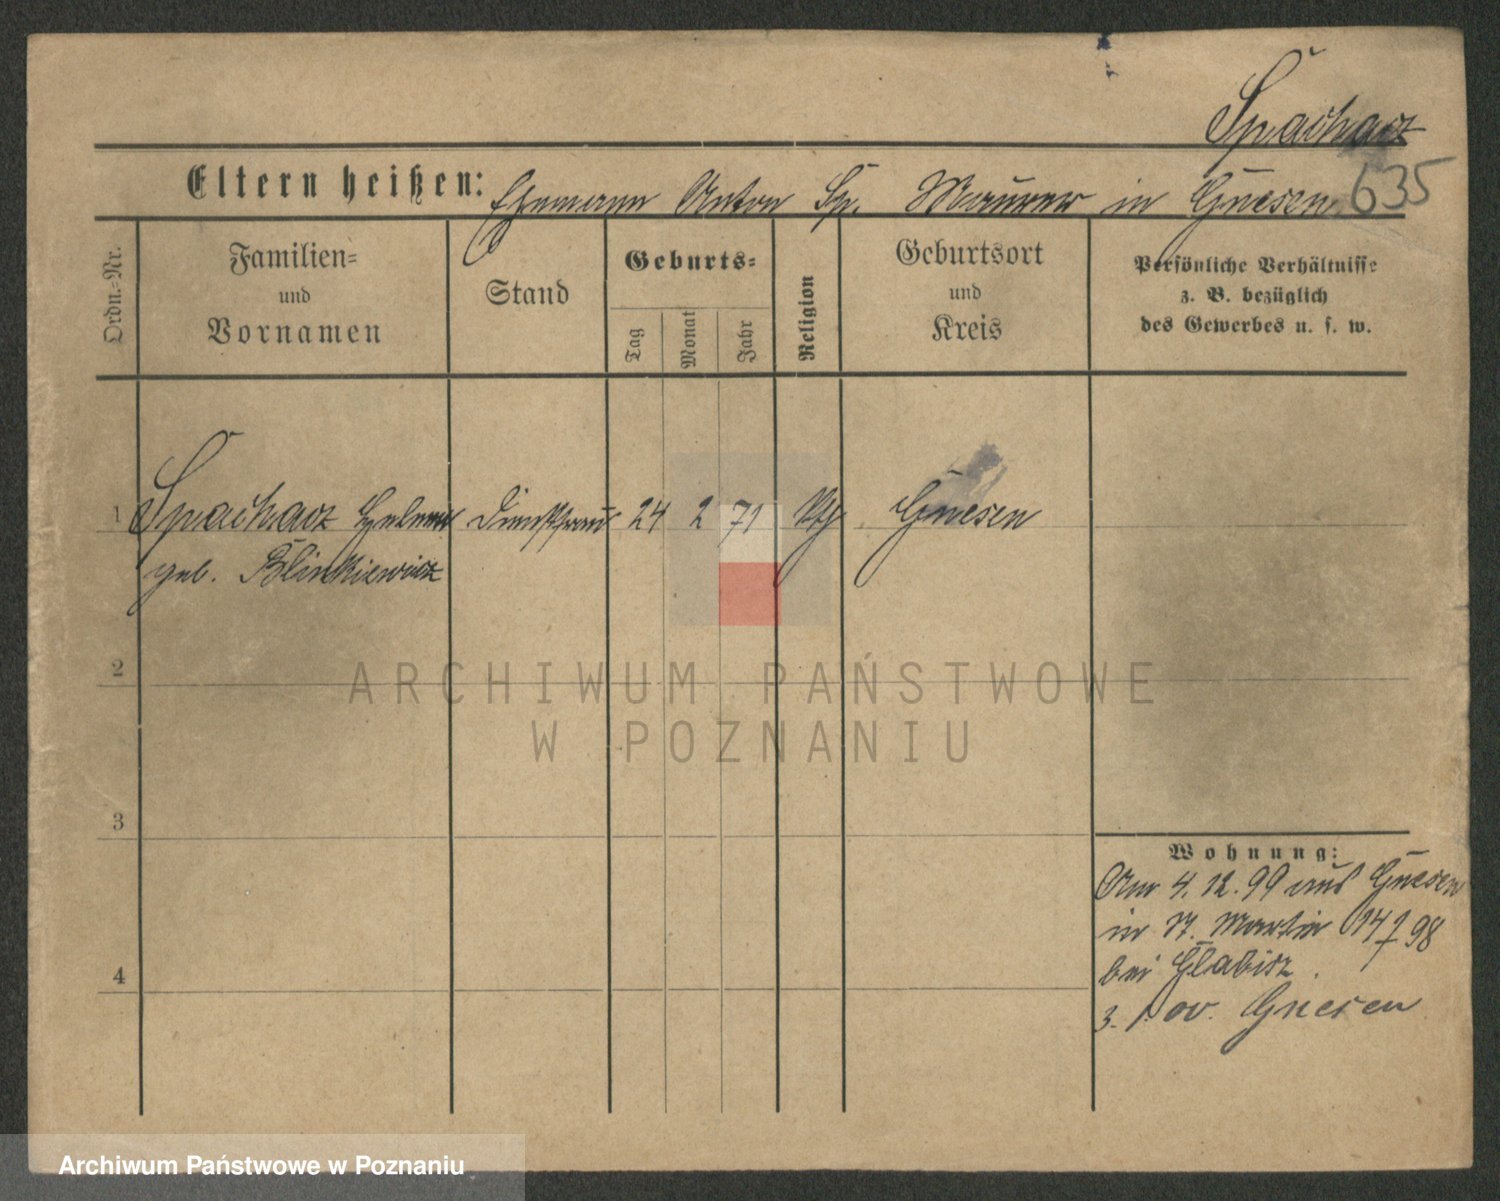 Spachacz
Eltern heißen: Ehemann Anton Sp. Maurer in Gnesen 635
Ordn.-Nr.
Familien-
und
Vornamen
Stand
Geburts-
Tag
Monat
Jahr
Religion
Geburtsort
und
Kreis
Persönliche Verhältnisse
z. B. bezüglich
des Gewerbes u. s. w.
1 Spachacz Helena 24 2 71 Gnesen
geb. Blinkiewicz
2
3
4
Wohnung:
Am 4.12.99 aus Gnesen
in St. Martin 14
bei Glabisz.
3. 1. 00. Gnesen
ARCHIWUM PAŃSTWOWE
W POZNANIU
Archiwum Państwowe w Poznaniu